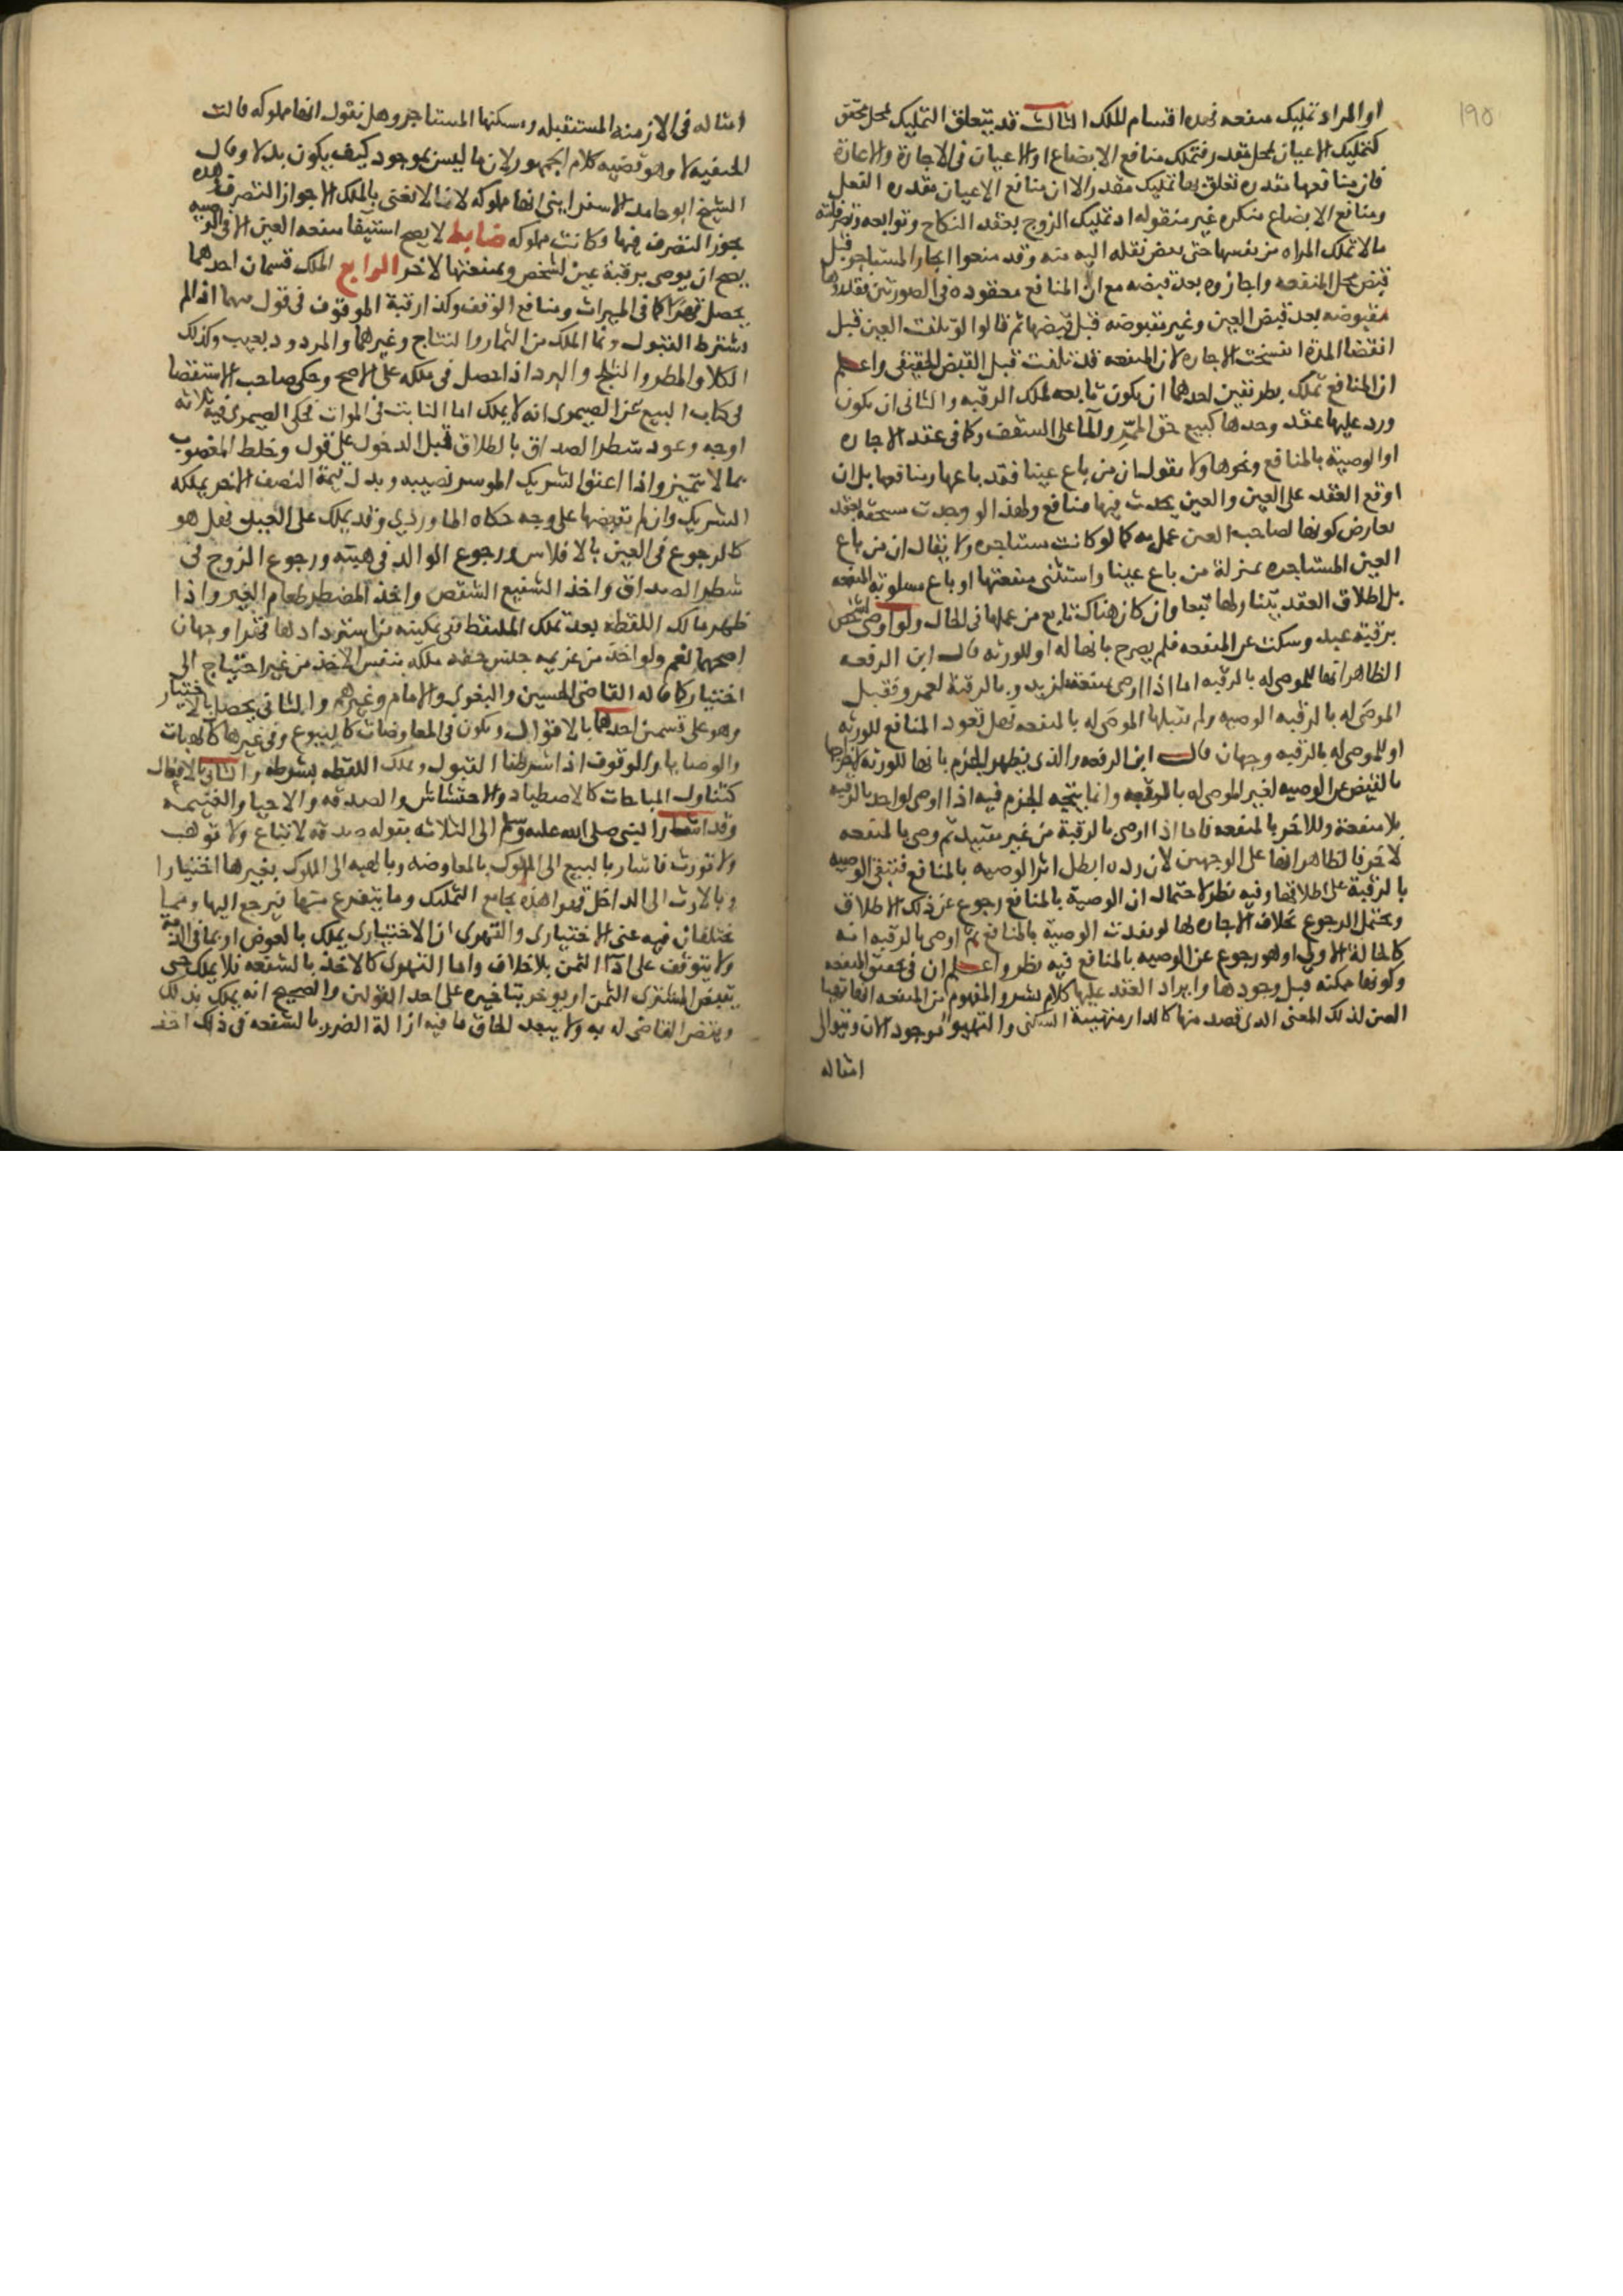 ١٩٥
او المراد تمليك منفعه فهذه اقسام للملك الثالث قد يتعلق التمليك بمحل محقق
كتمليك الاعيان بمحل مقدر فتملك منافع الابضاع او الاعيان في الاجارة والاعارة
فان منافعها مقدره تعلق بها تمليك مقدر الا ان منافع الاعيان مقدره الفعل
ومنافع الابضاع منكره غير منقوله اد تمليك الزوج بعقد النكاح وتوابعه
مالا تملك المراه من نفسها حتى نقله اليه منه وقد منعوا ايجار المستاجر قبل
قبض محل المنفعه واجازوه بعد قبضه مع ان المنافع معقوده في الصورتين فقدروها
مقبوضه بعد قبض العين وغير مقبوضه قبل قبضها ثم قالوا لو تلفت العين قبل
انقضا المدة انفسخت الاجاره لان المنفعه قد تلفت قبل القبض الحقيقى واعلم
ان المنافع تملك بطريقين احدهما ان يكون تابعه لملك الرقبه والثانى ان يكون
ورد عليها عقد وحدها كبيع حق الممرّ والما على السقف وكما في عقد الاجاره
او الوصية بالمنافع ونحوها ولا يقول ان من باع عينا فقد باعها ومنافعها بل ان
اوقع العقد على العين والعين يحدث فيها منافع ولهذا لو وجدت مستحقه بعقد
تعارض كونها لصاحب العين عمل به كما لو كانت مستاجره ولا يقال ان من باع
العين المستاجره بمنزلة من باع عينا واستثنى منفعتها او باع مسلوبة المنفعه
بل اطلاق العقد يتناولها تبعا وان كان هناك مانع من عملها في الحال ولو اوصى لشخص
برقبة عبد وسكت عن المنفعه فلم يصرح بانها له او للورثه قال ابن الرفعه
الظاهر انها للموصى له بالرقبه اما اذا اوصى بمنفعه لزيد وبالرقبة لعمرو فقبل
الموصى له بالرقبه الوصيه ولم يقبلها الموصى له بالمنفعه فهل تعود المنافع للورثه
او للموصى له بالرقبه وجهان قال ابن الرفعه والذى يظهر الجزم بانها للورثه لاخراجها
بالتنصيص عن الوصيه لغير الموصى له بالمنفعه وانما يتجه الجزم فيه اذا اوصى لواحد بالرقبه
بلا منفعة وللاخر بالمنفعه فاما اذا اوصى بالرقبة من غير تقييد ثم وصى بالمنفعه
لاخر فالظاهر انها على الوجهين لان رده ابطل اثر الوصيه بالمنافع فتبقى الوصيه
بالرقبة على اطلاقها وفيه نظر لاحتمال ان الوصية بالمنافع رجوع عن ذلك الاطلاق
ويحتمل الرجوع بخلاف الاجاره لها لو تقدمت الوصية بالمنافع ثم اوصى بالرقبه انه
كالحالة الاولى او هو رجوع عن الوصيه بالمنافع فيه نظر واعلم ان في تحقيق المنفعه
وكونها ممكنه قبل وجودها وايراد العقد عليها كلام نشر والمفهوم من المنفعه انها تهيا
العين لذلك المعنى الذى قصد منها كالدار متهيئة للسكنى والتهيؤ موجود الان وتتوالى
امثاله
امثاله في الازمنه المستقبله ويسكنها المستاجر وهل نقول انها مملوكه قالت
الحنفيه لا وهو قضيه كلام الجمهور لان ما ليس بموجود كيف يكون بدلا وقال
الشيخ ابو حامد الاسفراينى انها مملوكه لاننا لا نعنى بالملك الا جواز التصرف وهذه
يجوز التصرف فيها وكانت مملوكه ضابط لا يصح استيفا منفعه العين الا في الوصيه
يصح ان يوصى برقبة عين لشخص وبمنفعتها لاخر الرابع الملك قسمان احدهما
يحصل قهرا كما في الميراث ومنافع الوقف وكذا رقبة الموقوف في قول مهما اذا لم
نشترط القبول ونما الملك من الثمار والنتاج وغيرهما والمردود بعيب وكذلك
الكلا والمطر والثلج والبرد اذا حصل في ملكه على الاصح وحكى صاحب الاستقصا
في كتاب البيع عن الصيمرى انه لا يملك اما النابت في الموات فحكى الصيمرى فيه ثلاثه
اوجه وعود شطر الصداق بالطلاق قبل الدخول على قول وخلط المغصوب
بما لا يتميز واذا اعتق الشريك الموسر نصيبه وبدل قيمة النصف الاخر يملكه
الشريك وان لم يقبضها على وجه حكاه الماوردي وقد يملك على الجبل بفعل هو
كالرجوع في العين بالافلاس ورجوع الوالد في هبته ورجوع الزوج في
شطر الصداق واخذ الشفيع الشقص واخذ المضطر طعام الغير واذا
ظهر مالك اللقطه بعد تملك الملتقط ففى تمكينه من استردادها قهرا وجهان
اصحهما نعم ولو اخذ من غريمه جنس حقه ملكه بنفس الاخذ من غير احتياج الى
اختيار كما قاله القاضى الحسين والبغوى والامام وغيرهم والثانى يحصل بالاختيار
وهو على قسمين احدهما بالاقوال ويكون في المعاوضات كالبيوع وفي غيرها كالهبات
والوصايا والوقوف اذا اشترطنا القبول وتملك اللقطه بشرطه والثانى بالافعال
كتناول المباحات كالاصطياد والاحتشاش والصدقه والاحيا والغنيمه
وقد اشار النبى صلى الله عليه وسلم الى الثلاثه بقوله صدقه لا تباع ولا توهب
ولا تورث فاشار بالبيع الى الملوك بالمعاوضه وبالهبه الى الملوك بغيرها اختيارا
وبالارث الى الداخل قهرا هذه بجامع التمليك وما يتفرع منها يرجع اليها ومما
يختلفان فيه عنى الاختيارى والقهرى ان الاختيارى يملك بالعوض او بما في الذمه
ولا يتوقف على ادا الثمن بلا خلاف واما القهرى كالاخذ بالشفعه فلا يملك حتى
يقبض المشترى الثمن او يوخر بتاخيره على احد القولين والصحيح انه يملك بذلك
وبقضا القاضى له به ولا يبعد لحاق ما فيه ازالة الضرر بالشفعه في ذلك